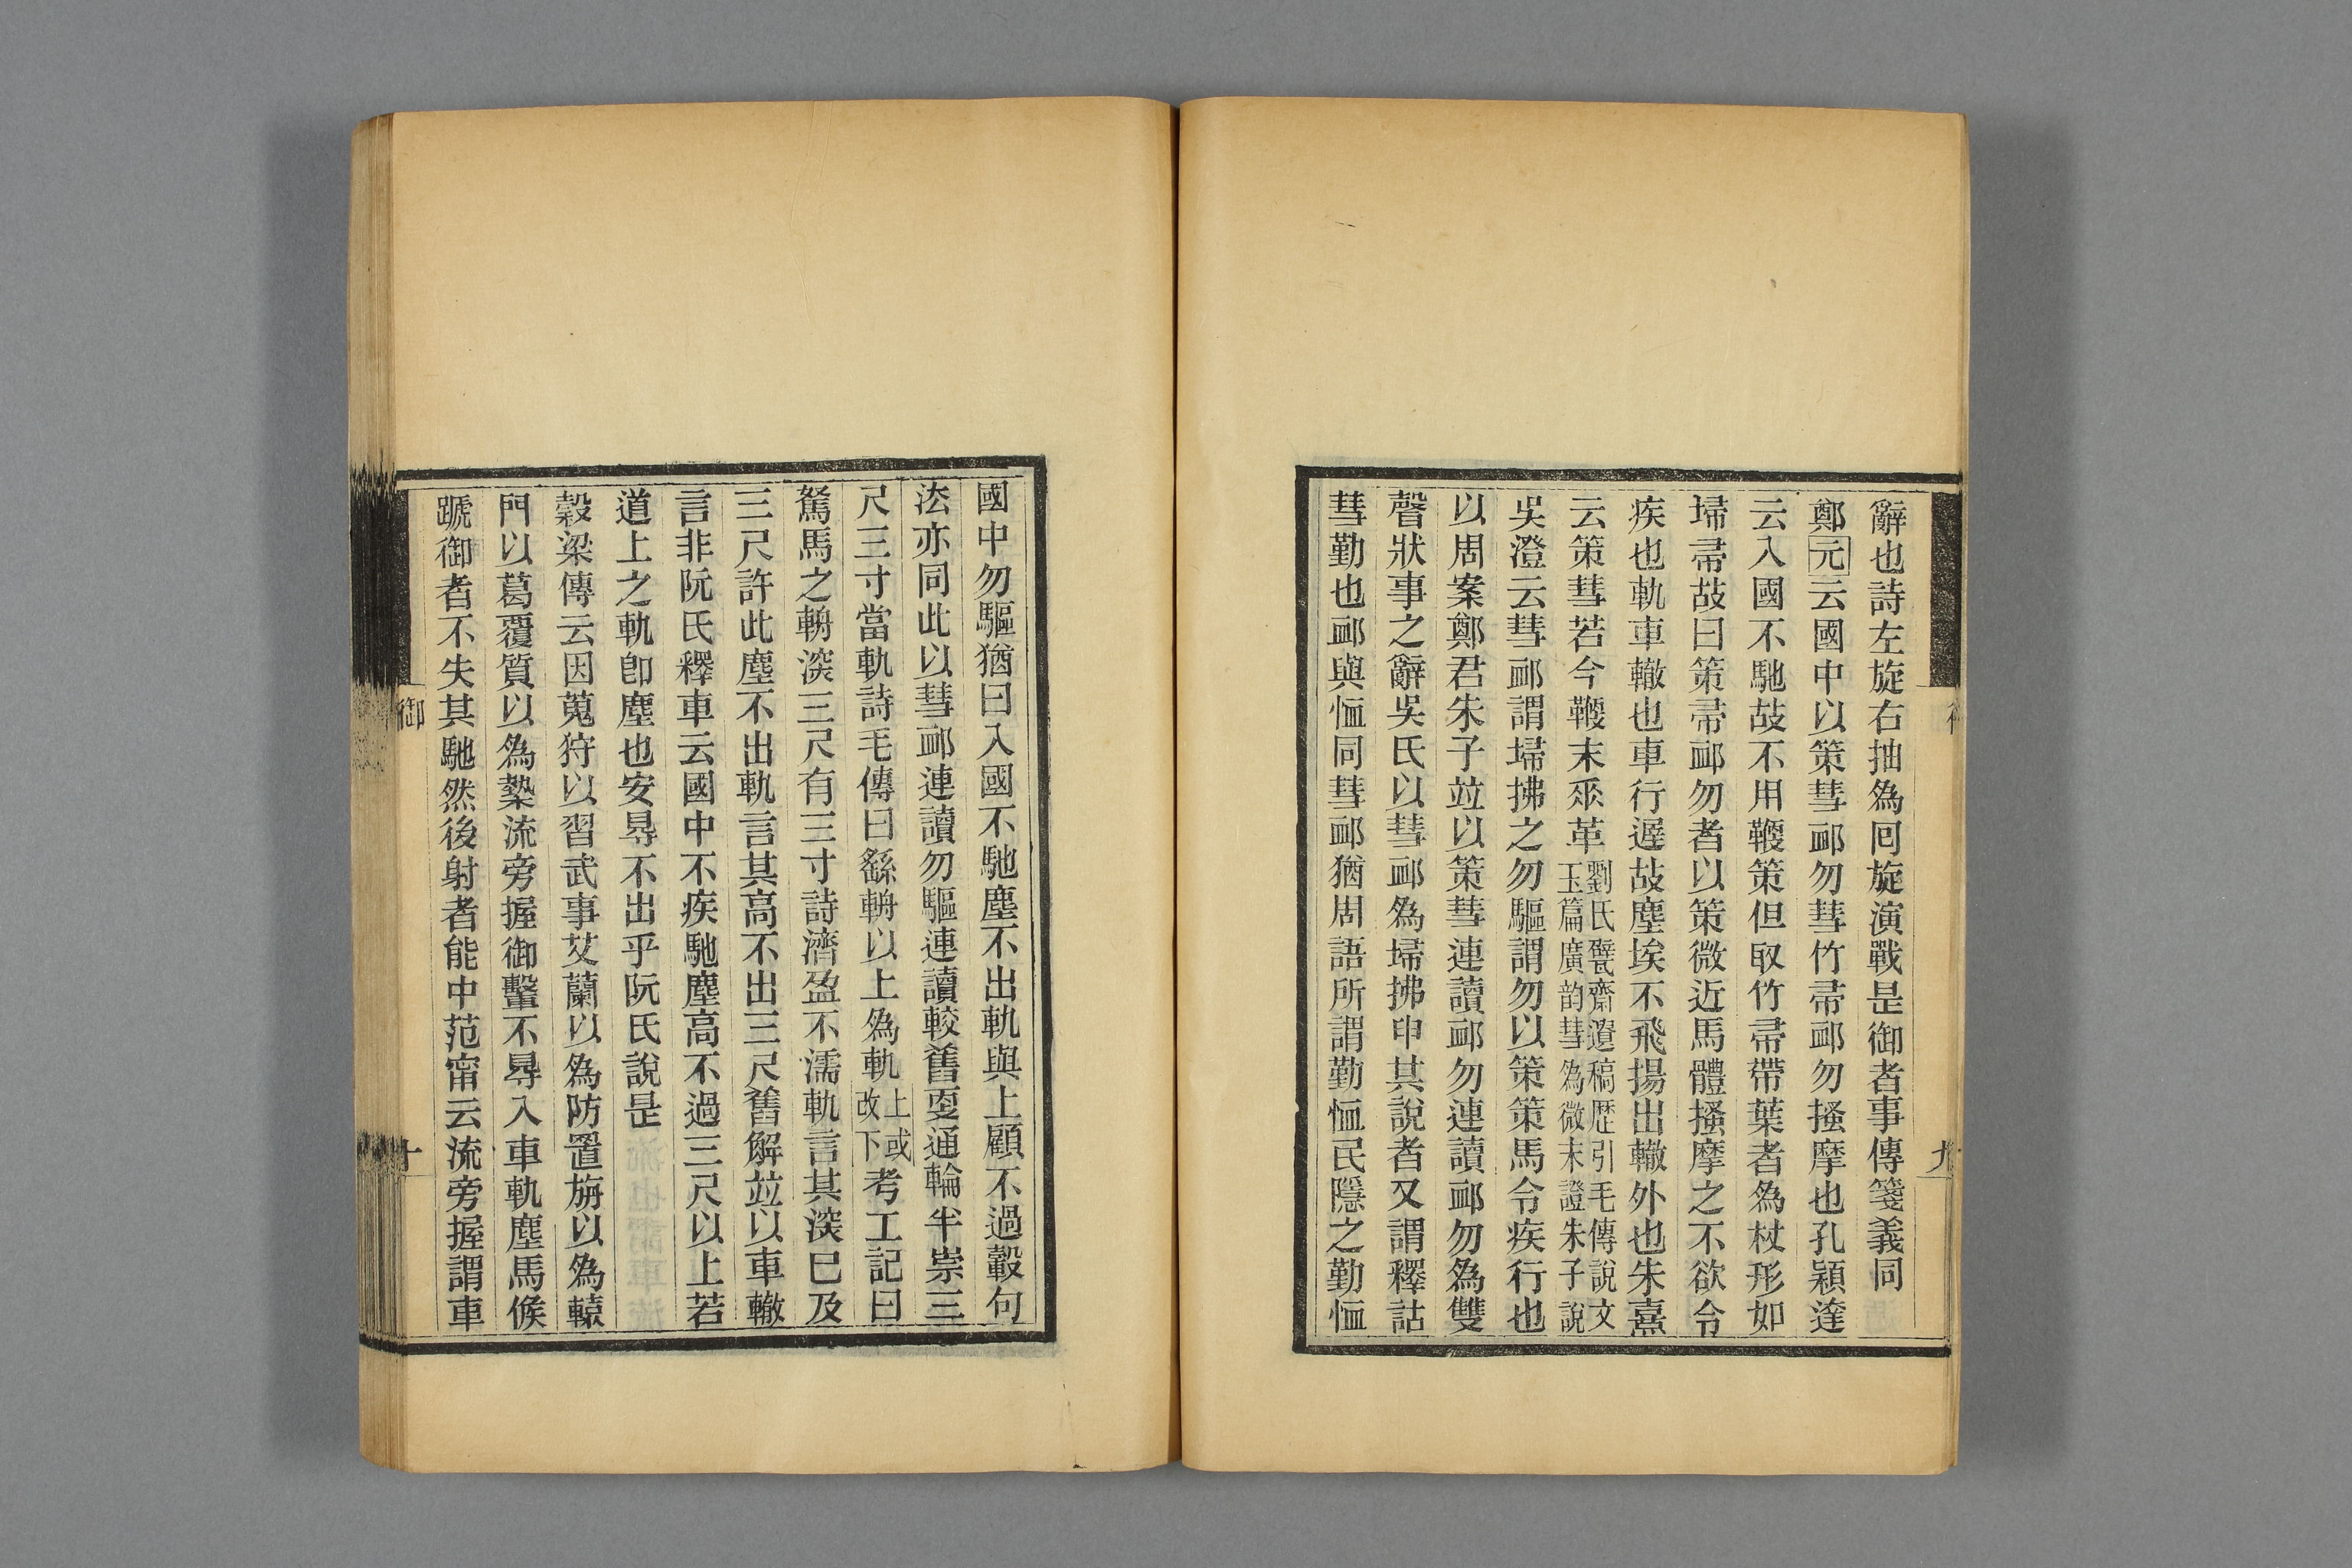 辭也詩左旋右抽爲回旋演戰是御者事傳箋義同
鄭元云國中以策彗䘏勿彗竹帚䘏勿搔摩也孔穎達
云入國不馳故不用鞭策但取竹帚帶葉者爲杖形如
埽帚故曰策帚䘏勿者以策微近馬體搔摩之不欲令
疾也軌車轍也車行遲故塵埃不飛揚出轍外也朱熹
云策彗若今鞭末𠂹革劉氏甓齋遺稿歷引毛傳說文
玉篇廣韵彗爲微末證朱子說
吳澄云彗䘏謂埽拂之勿驅謂勿以策策馬令疾行也
以周案鄭君朱子竝以策彗連讀䘏勿連讀䘏勿爲雙
聲狀事之辭吳氏以彗䘏爲埽拂申其說者又謂釋詁
彗勤也䘏與恤同彗䘏猶周語所謂勤恤民隱之勤恤
九
國中勿驅猶曰入國不馳塵不出軌與上顧不過轂句
法亦同此以彗䘏連讀勿驅連讀較舊更通輪半崇三
尺三寸當軌詩毛傳曰繇輈以上爲軌上或
改下考工記曰
駑馬之輈深三尺有三寸詩濟盈不濡軌言其深已及
三尺許此塵不出軌言其高不出三尺舊解竝以車轍
言非阮氏釋車云國中不疾馳塵高不過三尺以上若
道上之軌卽塵也安㝵不出乎阮氏說是
穀梁傳云因蒐狩以習武事艾蘭以爲防置旃以爲轅
門以葛覆質以爲槷流旁握御轚不㝵入車軌塵馬候
蹏御者不失其馳然後射者能中范甯云流旁握謂車
御
十